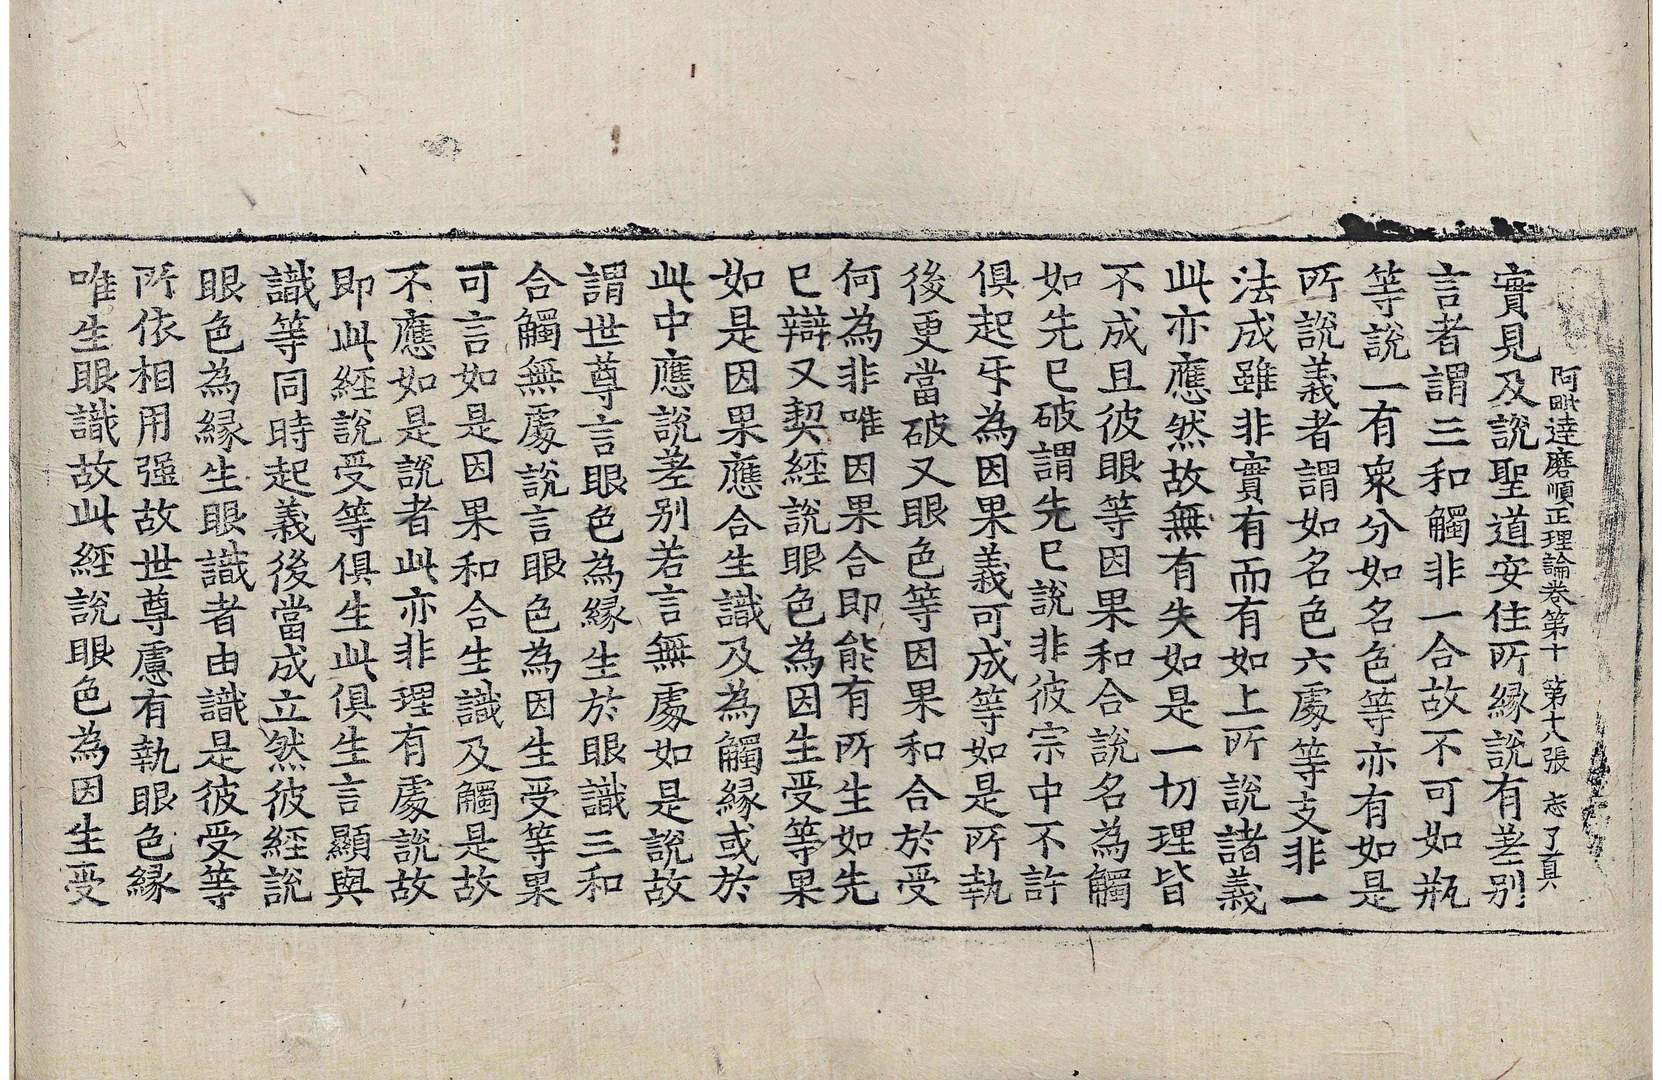 阿毗達磨順正理論卷第十 第十八張 志 了真
實見及說聖道安住所緣說有差別
言者謂三和觸非一合故不可如瓶
等說一有衆分如名色等亦有如是
所說義者謂如名色六處等支非一
法成雖非實有而有如上所說諸義
此亦應然故無有失如是一切理皆
不成且彼眼等因果和合說名為觸
如先已破謂先已說非彼宗中不許
俱起牙為因果義可成等如是所執
後更當破又眼色等因果和合於受
何為非唯因果合即能有所生如先
已辯又契經說眼色為因生受等果
如是因果應合生識及為觸緣或於
此中應說差別若言無處如是說故
謂世尊言眼色為緣生於眼識三和
合觸無處說言眼色為因生受等果
可言如是因果和合生識及觸是故
不應如是說者此亦非理有處說故
即此經說受等俱生此俱生言顯與
識等同時起義後當成立然彼經說
眼色為緣生眼識者由識是彼受等
所依相用强故世尊處有執眼色緣
唯生眼識故此經說眼色為因生受